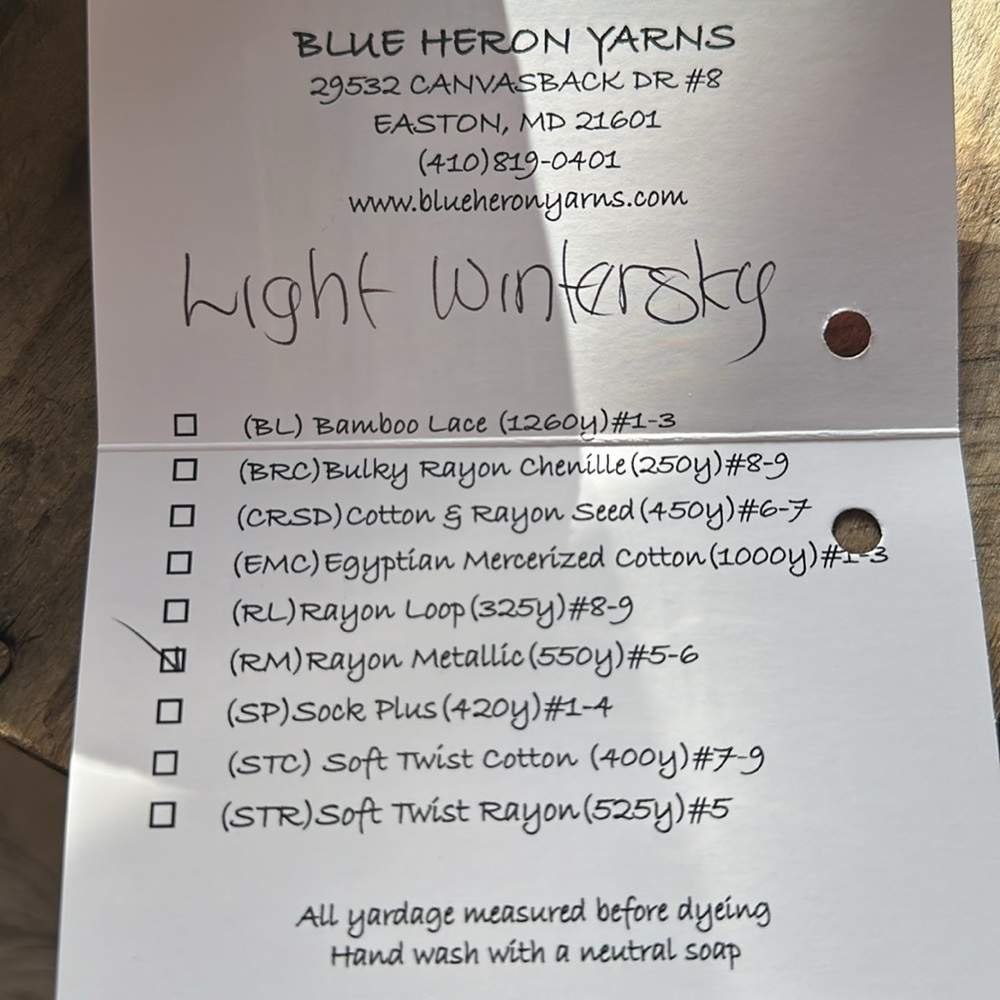 BLUE HERON YARNS
29532 CANVASBACK DR #8
EASTON, MD 21601
(410)819-0401
www.blueheronyarns.com
Light Wintersky
(BL) Bamboo Lace (1260y)#1-3
(BRC)Bulky Rayon Chenille(250y)#8-9
(CRSD)Cotton & Rayon Seed(450y)#6-7
(EMC)Egyptian Mercerized Cotton(1000y)#1-3
(RL)Rayon Loop(325y)#8-9
(RM)Rayon Metallic(550y)#5-6
(SP)Sock Plus(420y)#1-4
(STC) Soft Twist Cotton (400y)#7-9
(STR)Soft Twist Rayon(525y)#5
All yardage measured before dyeing
Hand wash with a neutral soap